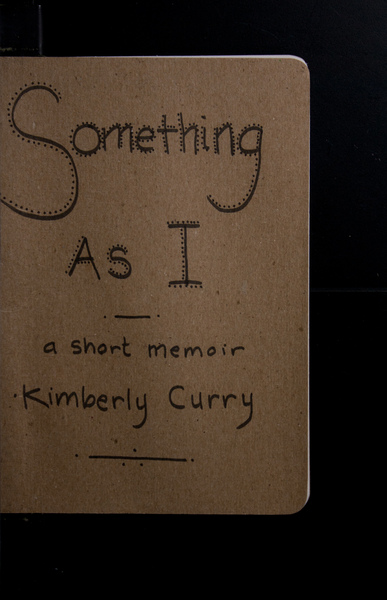 Something
As I
a short memoir
Kimberly Curry